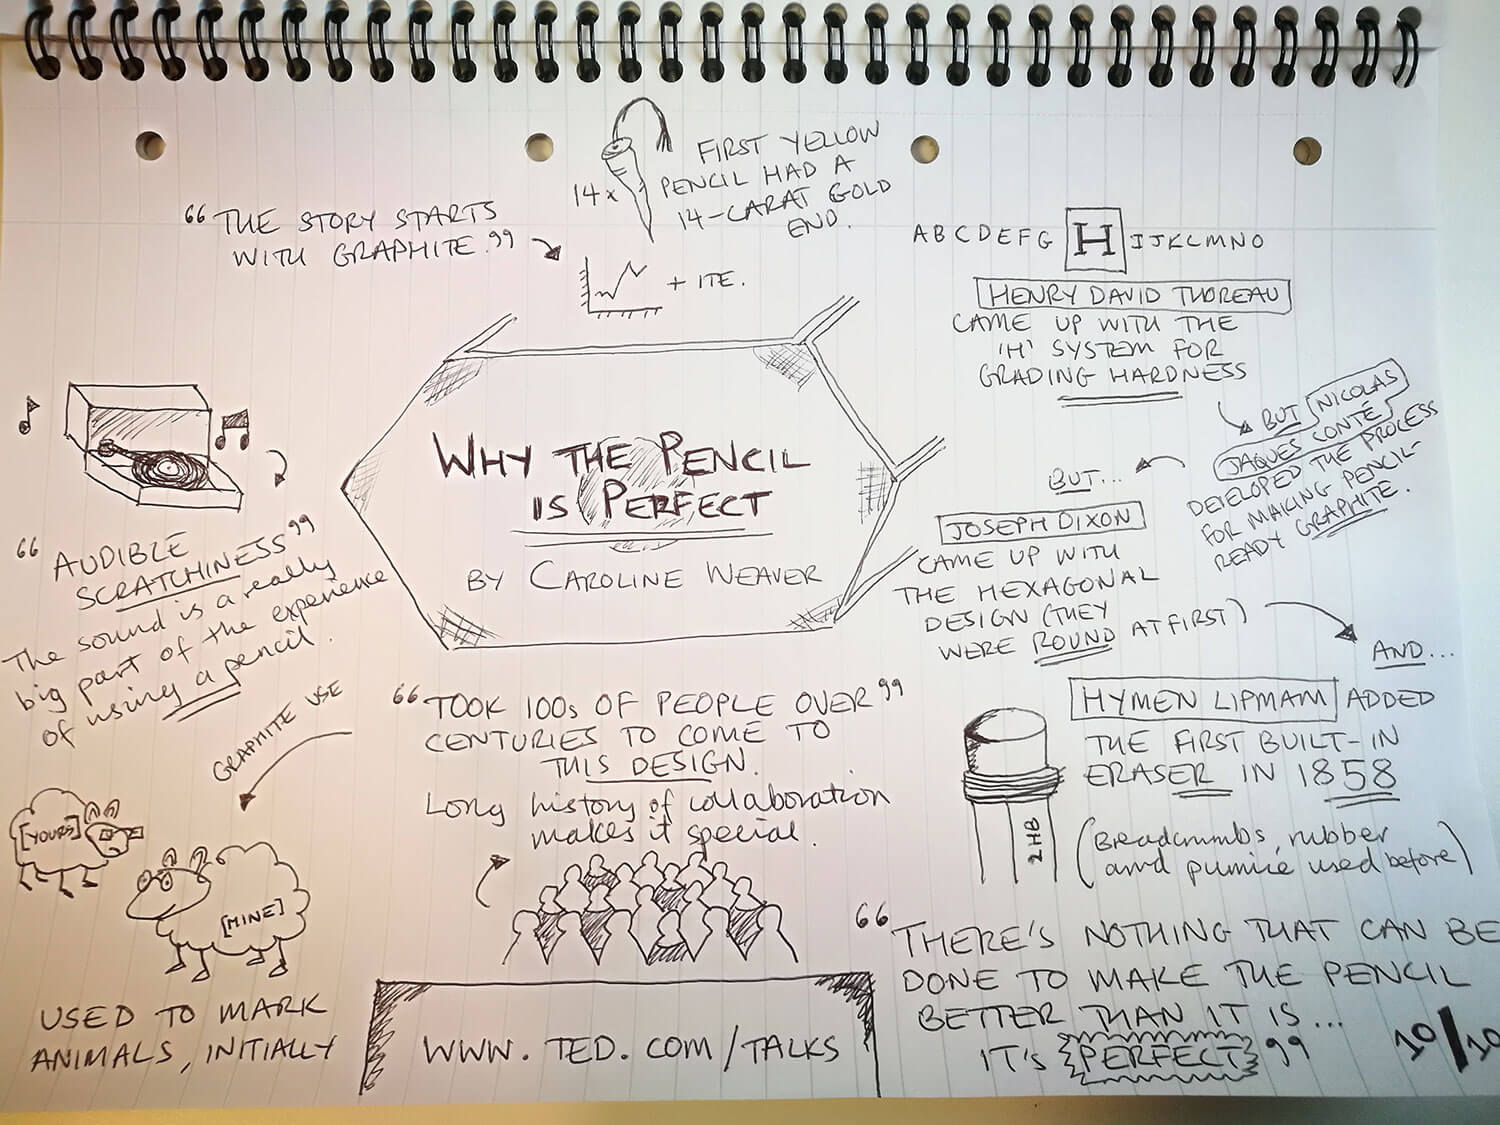 FIRST YELLOW
PENCIL HAD A
14-CARAT GOLD
END.
14x
"THE STORY STARTS
WITH GRAPHITE."
+ ITE.
A B C D E F G H I J K L M N O
HENRY DAVID THOREAU
CAME UP WITH THE
'H' SYSTEM FOR
GRADING HARDNESS
BUT NICOLAS
JAQUES CONTÉ
DEVELOPED THE PROCESS
FOR MAKING PENCIL-
READY GRAPHITE.
WHY THE PENCIL
IS PERFECT
BY CAROLINE WEAVER
BUT...
JOSEPH DIXON
CAME UP WITH
THE HEXAGONAL
DESIGN (THEY
WERE ROUND AT FIRST)
"AUDIBLE
SCRATCHINESS"
The sound is a really
big part of the experience
of using a pencil.
AND...
HYMEN LIPMAM ADDED
THE FIRST BUILT-IN
ERASER IN 1858
(Breadcrumbs, rubber
and pumice used before)
2HB
"TOOK 100s OF PEOPLE OVER"
CENTURIES TO COME TO
THIS DESIGN.
Long history of collaboration
makes it special.
GRAPHITE USE
[YOURS]
[MINE]
USED TO MARK
ANIMALS, INITIALLY
WWW.TED.COM/TALKS
"THERE'S NOTHING THAT CAN BE
DONE TO MAKE THE PENCIL
BETTER THAN IT IS...
IT'S PERFECT"
10/10